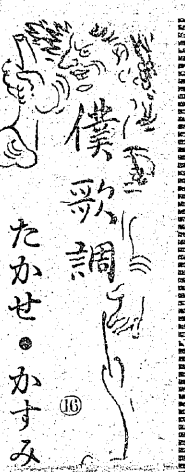 僕歌調
⑯
たかせ●かすみ